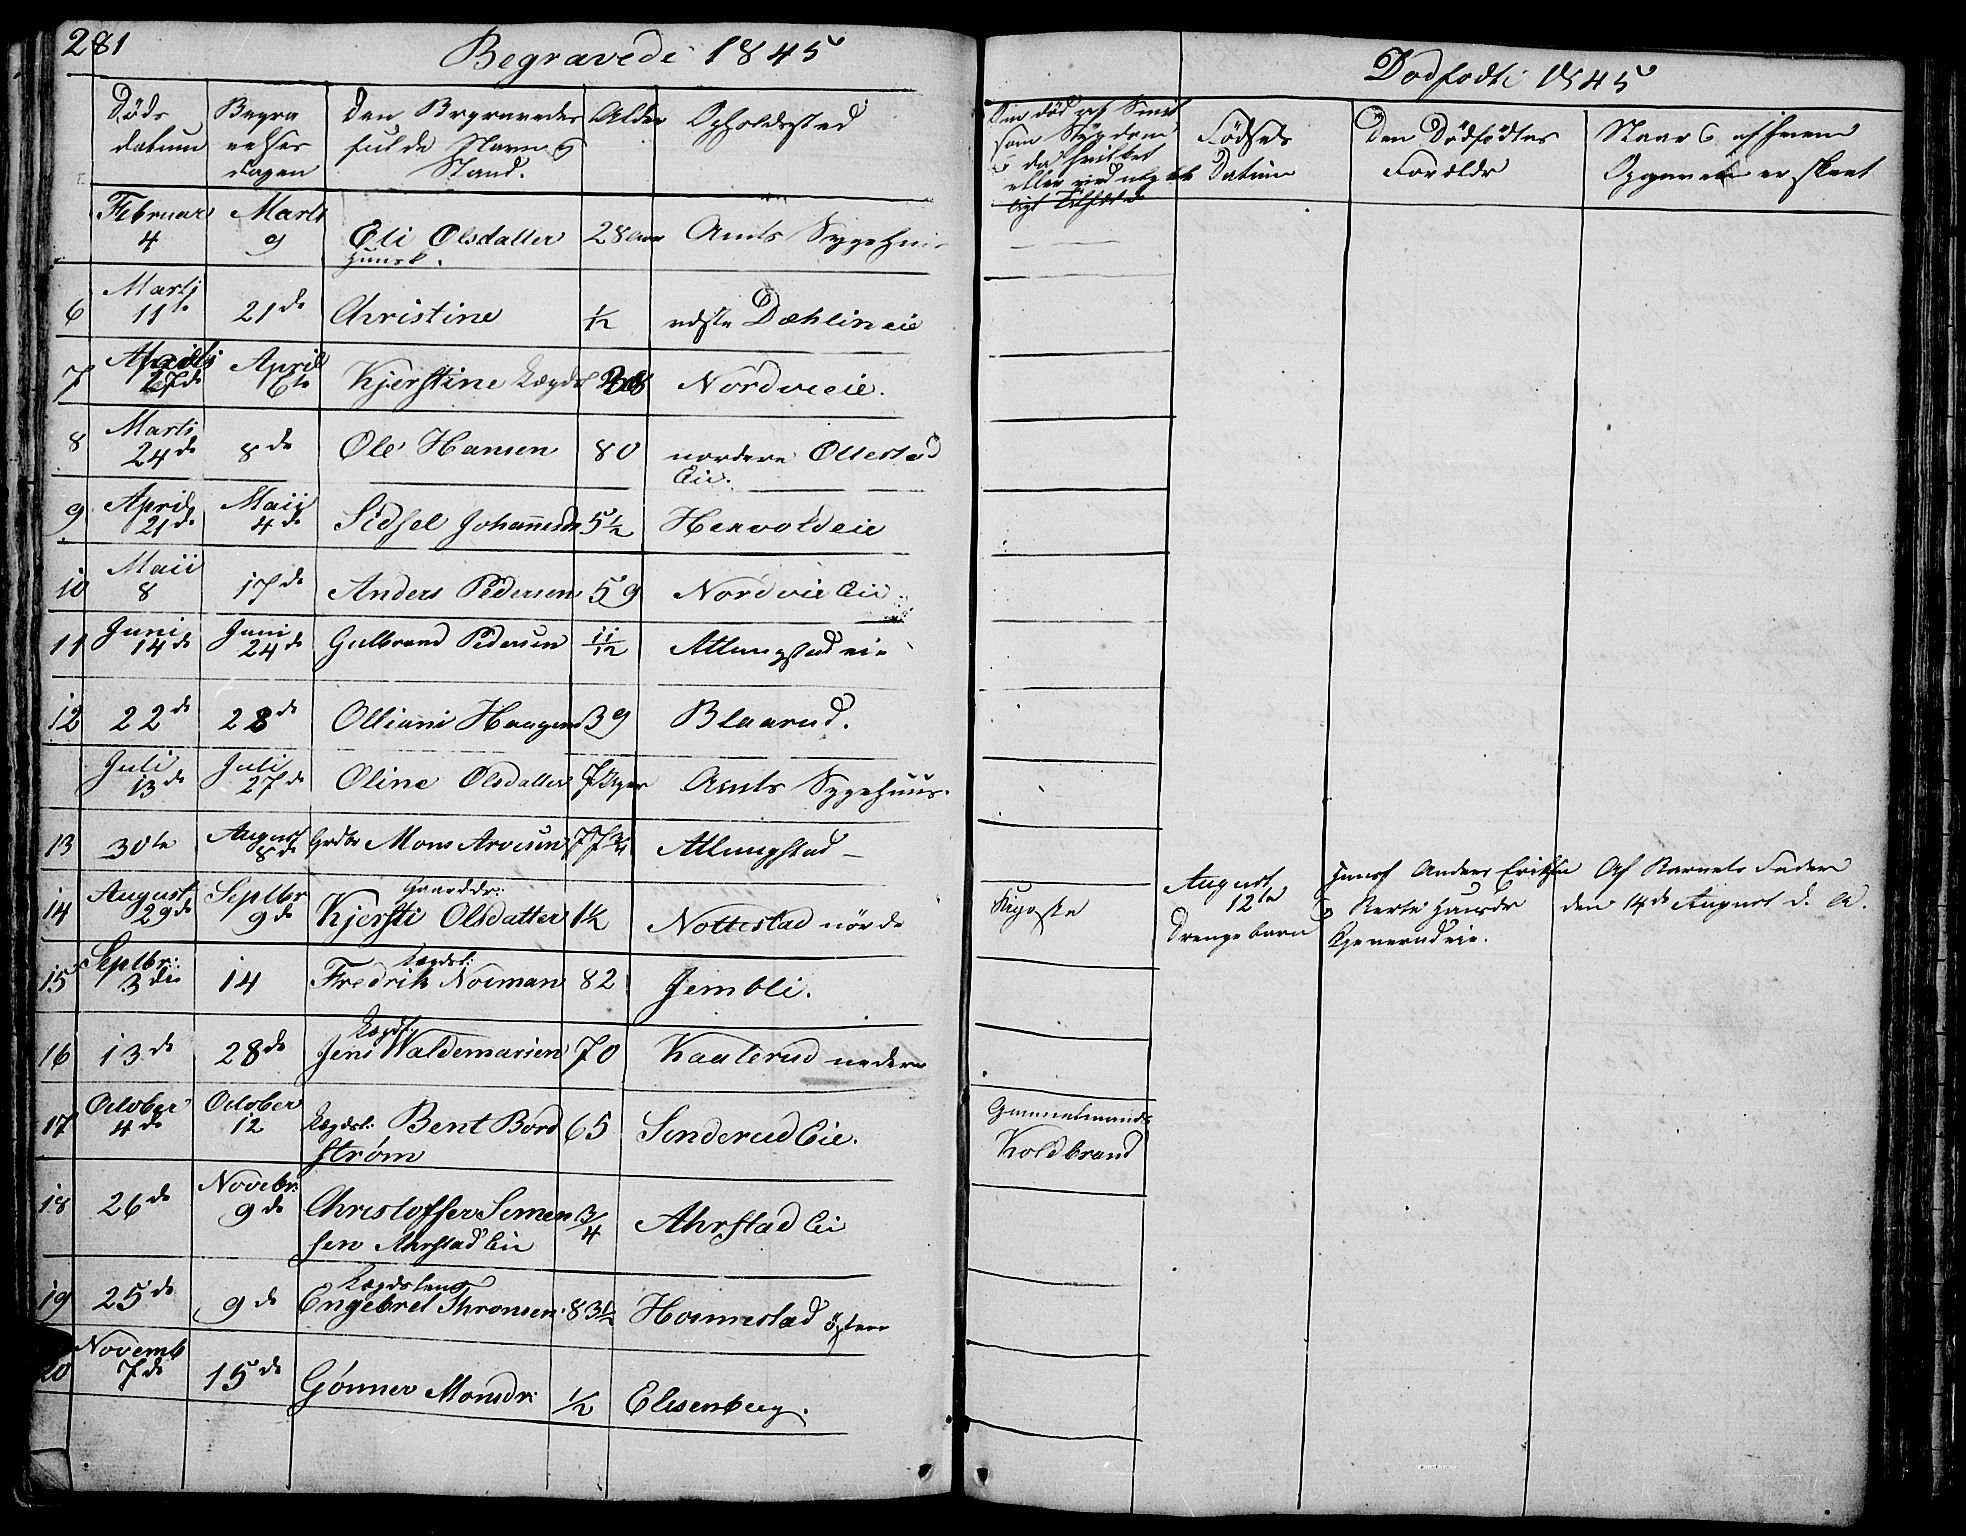 281
Begravede 1845
Døds datum | Begravelses dagen | Den Begravedes fulde Navn og Stand. | Alder | Opholdssted
Februar 4 | Marts 9 | Eli Olsdatter Huusk. | 28 Aar | Amts Sygehuu
6 | Marts 11te | 21de | Christine | 1/2 | Dæhlin eie
7 | 27de | April 6te | Kjerstine Lægdsl | Nordvi eie.
8 | Marts 24de | 8de | Ole Hansen | 80 | nordre Ottestad Eie.
9 | April 21de | Maii 4de | Sidsel Johannesdr | 5 1/2 | Hexvold eie
10 | Maii 8 | 17de | Anders Pedersen | 59 | Nordvie Eie.
11 | Juni 14de | Juni 24de | Gulbrand Pedersen | 11/12 | Atlungstad eie
12 | 22de | 28de | Olliani Haagens | 39 | Blaarud.
Juli 13de | Juli 27de | Oline Olsdatter | 7 Uger | Amts Sygehuus.
13 | 30te | August 8de | Grdbr Mons Arvesen | 77 3/4 | Atlungstad
14 | August 29de | Septbr 9de | Gaarddr: Kjersti Olsdatter | 1 1/2 | Nottestad nörde
15 | Septbr: 3die | 14 | Lægdsl: Fredrik Noiman | 82 | Jembli.
16 | 13de | 28de | Lægdsl: Jens Waldemarsen | 70 | Kaaterud nedere
17 | October 4de | October 12 | Lægdsl: Bent Bordstrøm | 65 | Sonderud Eie.
18 | 26de | Novebr: 9de | Christoffer Semensen Ahrstad Eie | 3/4 | Ahrstad Eie
19 | 25de | 9de | Lægdslem Engebret Thronsen. | 83 1/2 | Hommestad östere
20 | Novemb 7de | 15de | Gønner Monsdr: | 1/2 | Elisenberg.
Dodfødte 1845
Om død af Smitsom Sygdom
eller ved
Fødsels Datum | Den Dödfödtes Forældre | Naar og af hvem Opgaven er skeet
Krgoste
August 12te Drengebarn | Huusf Anders Eriksen og Berte Hansdr Kjenerud eie. | Af Barnets Fader den 14de August d. A.
Gammelmands Koldbrand